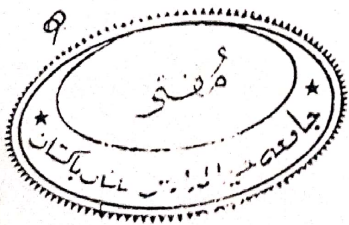 مُفتی
جامعہ خیر المدارس ملتان پاکستان